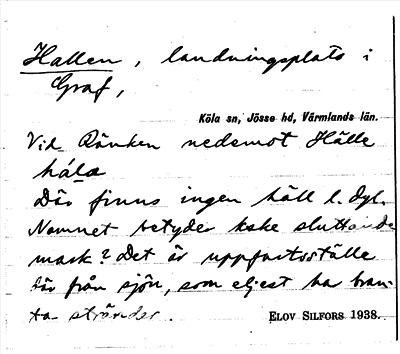 Hallen, landningsplats i
Graf,
Köla sn, Jösse hd, Värmlands län.
Vid Ränken nedemot Hälle
håla
Där finns ingen häll l. dyl.
Namnet betyder kske sluttande
mark? Det är uppfartsställe
där från sjön, som eljest ha bran-
ta stränder.
ELOV SILFORS 1938.